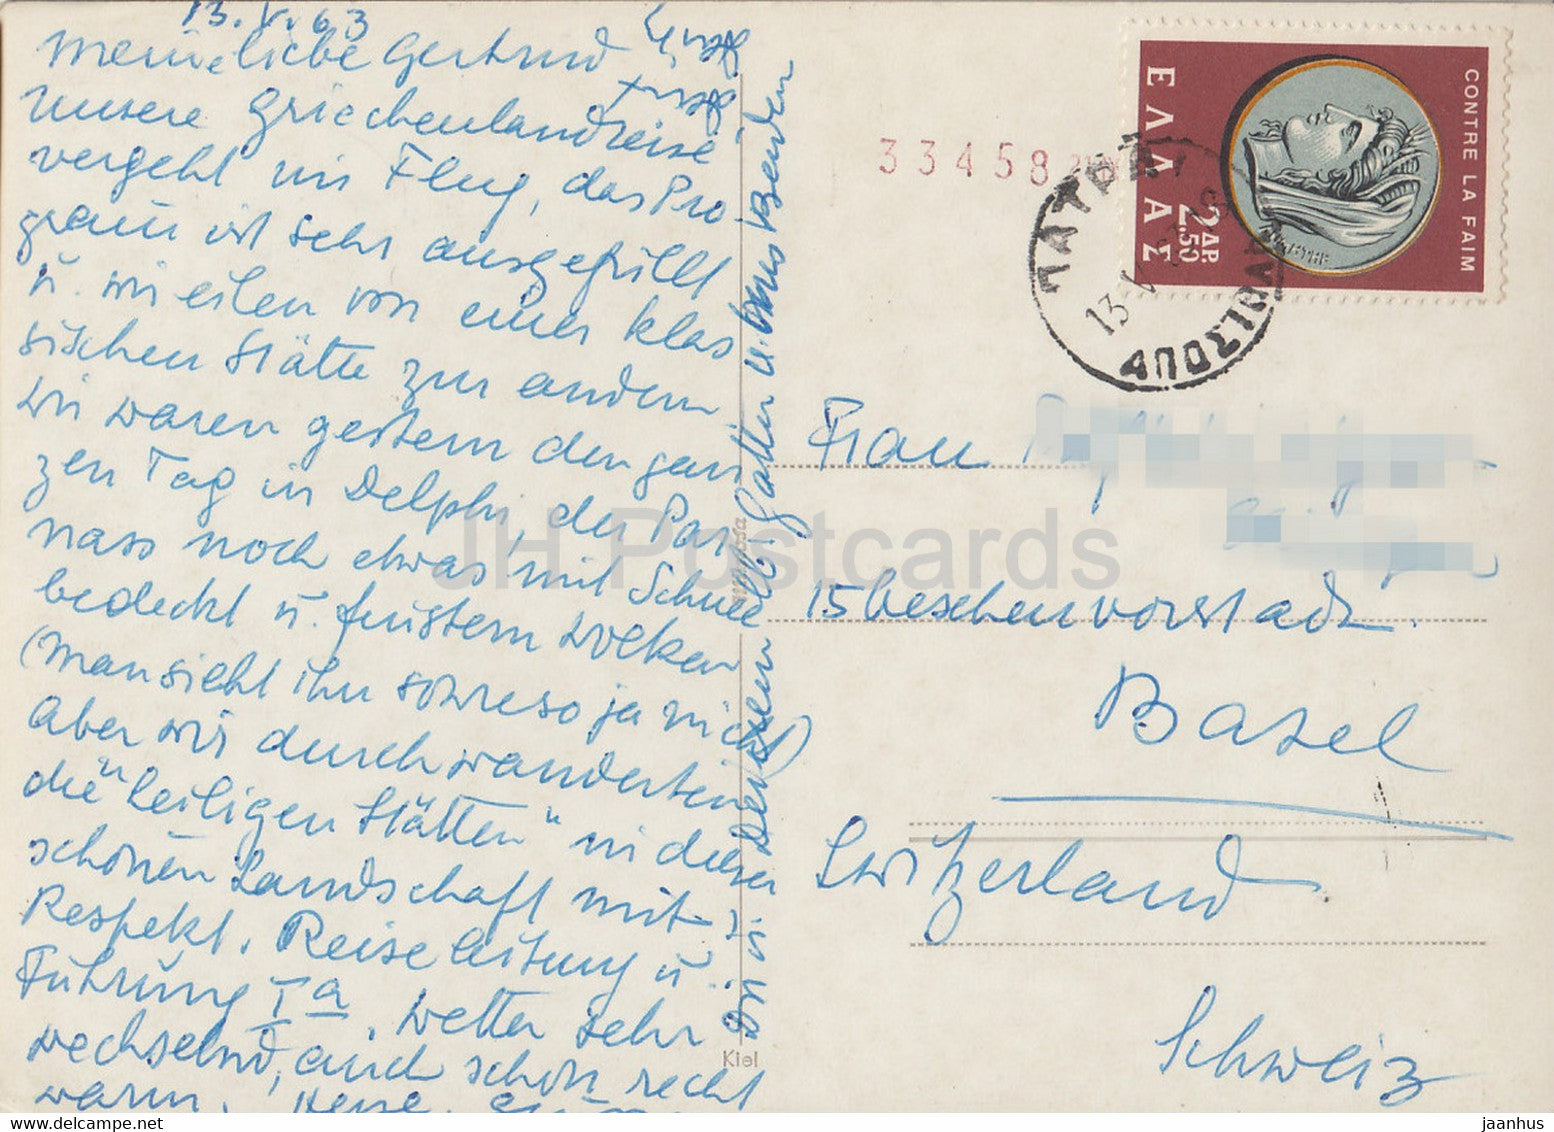 13. V. 63
Meine liebe Gertrud
unsere Griechenlandreise
vergeht im Flug, das Pro-
gram ist sehr ausgefüllt
u. wir eilen von einer klas
sischen Stätte zur andern
Wir waren gestern den gan
zen Tag in Delphi, der Par
nass noch etwas mit Schnee
bedeckt u. finstern Wolken
(man sieht ihn sowieso ja nicht)
Aber wir durchwanderten
die "heiligen Stätten" in dieser
schönen Landschaft mit
Respekt. Reiseleitung u.
Führung Ia, Wetter sehr
wechselnd, auch schon recht
warm.
Gatten u.
Kiel
JH Postcards
33458
ΕΛΛΑΣ
2.50
ΔΡ.
CONTRE LA FAIM
ΠΑΤΡΑΙ
13
Frau
15 Aeschenvorstadt.
Basel
Switzerland
Schweiz
jaanhus